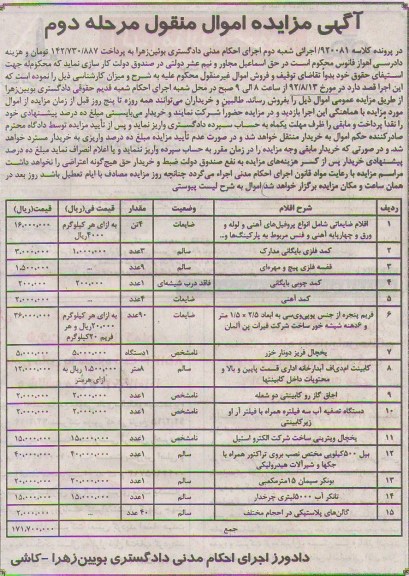 آگهی مزایده اموال منقول مرحله دوم
در پرونده کلاسه ۹۲۰۰۸۱/ اجرائی شعبه دوم اجرای احکام مدنی دادگستری بوئین‌زهرا به پرداخت ۱۴۲/۷۳۰/۸۸۷ تومان و هزینه
دادرسی اهواز فانوس محکوم است در حق اسماعیل مجاور و نیم عشر دولتی در صندوق دولت کار سازی نماید که محکوم‌له جهت
استیفای حقوق خود بدواً تقاضای توقیف و فروش اموال غیرمنقول محکوم علیه به شرح و میزان کارشناسی ذیل را نموده است که
این اجرا قصد دارد در مورخ ۹۲/۸/۱۳ از ساعت ۸ الی ۹ صبح در محل شعبه اجرای احکام شعبه قدیم حقوقی دادگستری بوئین‌زهرا
از طریق مزایده عمومی اموال ذیل را بفروش رساند. طالبین و خریداران می‌توانند همه روزه تا پنج روز قبل از زمان مزایده از اموال
مورد مزایده با هماهنگی این اجرا بازدید و در مزایده حضور/ شرکت نمایند و خریدار می‌بایستی مبلغ ده درصد پیشنهادی خود
را نقداً پرداخت و مابقی را ظرف مهلت یکماه به حساب سپرده دادگستری واریز نماید و پس از تأیید مزایده توسط دادگاه محترم
صادرکننده حکم اموال به خریدار منتقل خواهد شد و در صورت عدم تأیید مزایده مبلغ ده درصد واریزی به خریدار مسترد خواهد
شد. و در صورتی که خریدار مابقی وجه مزایده را در زمان مقرر به حساب سپرده واریز ننماید و یا اعلام انصراف نماید مبلغ ده درصد
پیشنهادی خریدار پس از کسر هزینه‌های مزایده به نفع صندوق دولت ضبط و خریدار حق هیچ‌گونه اعتراضی را نخواهد داشت
مراسم مزایده با رعایت مواد قانون اجرای احکام مدنی اجراء می‌گردد چنانچه روز مزایده مصادف با ایام تعطیل باشد روز بعد در
همان ساعت و مکان مزایده برگزار خواهد شد/ اموال به شرح لیست پیوستی
ردیف شرح اقلام وضعیت مقدار قیمت فی(ریال) قیمت(ریال)
۱ اقلام ضایعاتی شامل انواع پروفیل‌های آهنی و لوله و ورق و چهارپایه آهنی و فنس مربوط به پارکینگ‌ها و... ضایعات ۴تن به ازای هر کیلوگرم ۴۰۰۰ریال ۱۶,۰۰۰,۰۰۰
۲ کمد فلزی بایگانی مدارک سالم ۳عدد ۱,۰۰۰,۰۰۰ ۳,۰۰۰,۰۰۰
۳ قفسه فلزی پیچ و مهره‌ای سالم ۹عدد ... ۱,۵۰۰,۰۰۰
۴ کمد چوبی بایگانی فاقد درب شیشه‌ای ۱عدد ۲۰۰,۰۰۰ ۲۰۰,۰۰۰
۵ کمد آهنی ضایعات ۴عدد ... ۲,۰۰۰,۰۰۰
۶ فریم پنجره از جنس یوپی‌وی‌سی به ابعاد ۲/۵ × ۱/۵ متر و ۶دهنه شیشه خور ساخت شرکت فیرات پن آلمان ضایعات ۹۰عدد به ازای هر کیلوگرم ۲۰,۰۰۰ریال و هر فریم ۲۰کیلوگرم ۳۶,۰۰۰,۰۰۰
۷ یخچال فریز دونار خزر نامشخص ۱دستگاه ۵,۰۰۰,۰۰۰ ۵,۰۰۰,۰۰۰
۸ کابینت ام‌دی‌اف آبدارخانه اداری قسمت پایین و بالا و محتویات داخل کابینتها سالم ۸متر ۱,۵۰۰,۰۰۰ ریال به ازای هرمتر ۱۲,۰۰۰,۰۰۰
۹ اجاق گاز رو کابینتی دو شعله نامشخص ۱عدد ۲,۰۰۰,۰۰۰ ۲,۰۰۰,۰۰۰
۱۰ دستگاه تصفیه آب سه فیلتره همراه با فیلتر آر او زیرکابینتی نامشخص ۱عدد ۲,۰۰۰,۰۰۰ ۲,۰۰۰,۰۰۰
۱۱ یخچال ویترینی ساخت شرکت الکترو استیل نامشخص ۱عدد ۱۵,۰۰۰,۰۰۰ ۱۵,۰۰۰,۰۰۰
۱۲ بیل ۵۰۰کیلویی مختص نصب بروی تراکتور همراه با جکها و شیرآلات هیدرولیکی سالم ۱عدد ۴۰,۰۰۰,۰۰۰ ۴۰,۰۰۰,۰۰۰
۱۳ بونکر سیمان ۱۵مترمکعبی سالم ۱عدد ۲۰,۰۰۰,۰۰۰ ۲۰,۰۰۰,۰۰۰
۱۴ تانکر آب ۵۰۰۰لیتری چرخدار سالم ۱عدد ۱۵,۰۰۰,۰۰۰ ۱۵,۰۰۰,۰۰۰
۱۵ گالن‌های پلاستیکی در احجام مختلف سالم ۴۰ عدد ... ۲,۰۰۰,۰۰۰
جمع ۱۷۱,۷۰۰,۰۰۰
دادورز اجرای احکام مدنی دادگستری بویین‌زهرا -کاشی